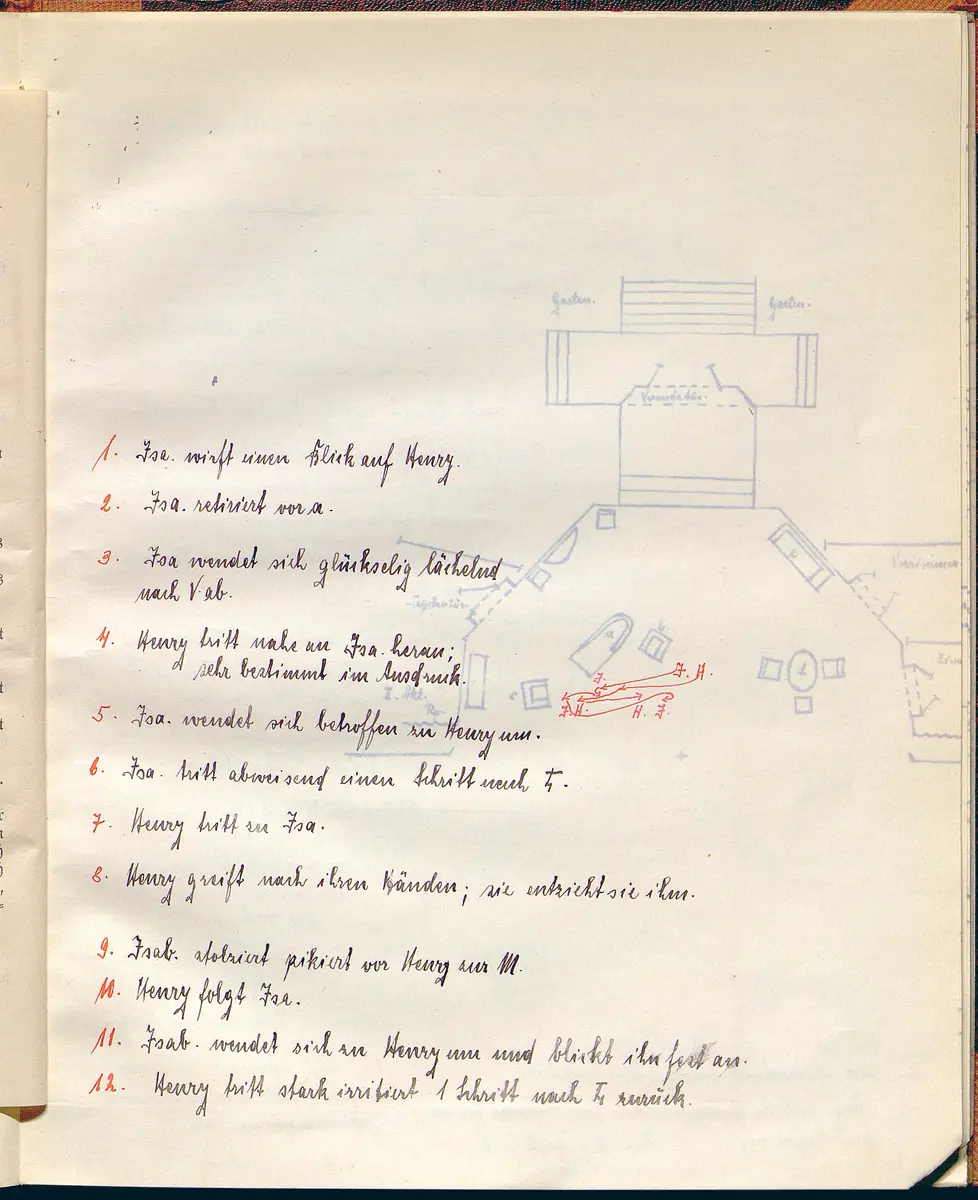 Garten.
Garten.
Verandatür.
1. Isa. wirft einen Blick auf Henry.
2. Isa. retiriert vor a.
3. Isa wendet sich glückselig lächelnd
nach V. ab.
Tapetentür.
4. Henry tritt nahe an Isa. heran;
sehr bestimmt im Ausdruck.
a
b
c
d
e
J. H.
J.
J. H.
H. J.
II. Akt.
5. Isa. wendet sich betroffen zu Henry um.
6. Isa. tritt abweisend einen Schritt nach
7. Henry tritt zu Isa.
8. Henry greift nach ihren Händen; sie entzieht sie ihm.
9. Isab. stolziert pikiert vor Henry zur M.
10. Henry folgt Isa.
11. Isab. wendet sich zu Henry um und blickt ihn fest an.
12. Henry tritt stark irritiert 1 Schritt nach zurück.